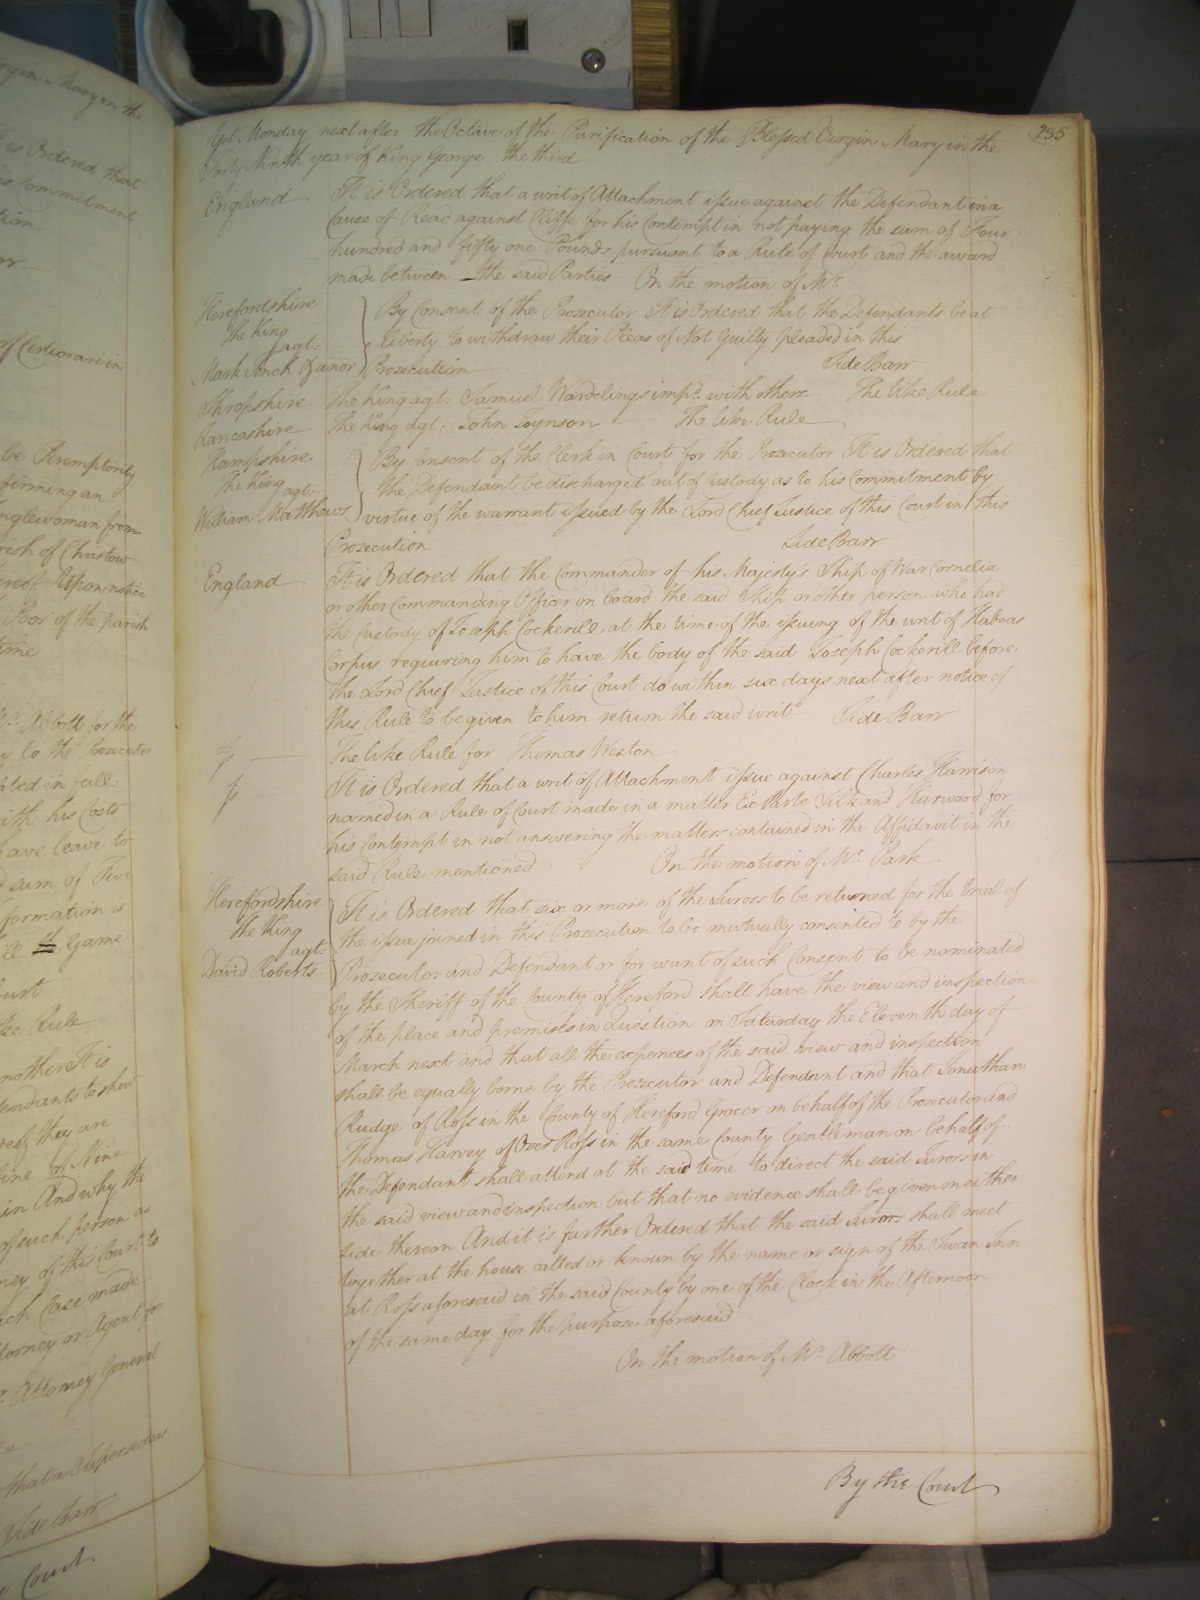 235
Yet Monday next after the Octave of the Purification of the Blessed Virgin Mary in the
Forty Ninth year of King George the third
England It is Ordered that a writ of Attachment issue against the Defendant in a
Cause of Read against Cliffe for his Contempt in not paying the sum of Four
hundred and fifty one Pounds pursuant to a Rule of Court and the award
made between the said Parties On the motion of Mr.
Herefordshire
The King
agt.
Mark Finch & anor
By Consent of the Prosecutor It is Ordered that the Defendants be at
liberty to withdraw their Pleas of Not Guilty pleaded in this
Prosecution Side Barr
Shropshire The King agt. Samuel impd. with others The like Rule
Lancashire The King agt. John Joynson The like Rule
Hampshire
The King
agt.
William Matthews
By Consent of the Clerk in Court for the Prosecutor It is Ordered that
the Defendant be discharged out of Custody as to his Commitment by
virtue of the warrant issued by the Lord Chief Justice of this Court in this
Prosecution Side Barr
England It is Ordered that the Commander of his Majesty's Ship of War Cornelia
or other Commanding Officer on board the said Ship or other person who had
the Custody of Joseph Cockerill at the time of the issuing of the writ of Habeas
Corpus requiring him to have the body of the said Joseph Cockerill before
the Lord Chief Justice of this Court do within six days next after notice of
this Rule to be given to him return the said writ Side Barr
The like Rule for Thomas Weston
It is Ordered that a writ of Attachment issue against Charles Harrison
named in a Rule of Court made in a matter Ex Parte Silk and Harwood for
his Contempt in not answering the matters contained in the Affidavit in the
said Rule mentioned On the motion of Mr. Park
Herefordshire
The King
agt.
David Roberts
It is Ordered that six or more of the Jurors to be returned for the trial of
the issue joined in this Prosecution to be mutually consented to by the
Prosecutor and Defendant or for want of such Consent to be nominated
by the Sheriff of the County of Hereford shall have the view and inspection
of the place and premises in Question on Saturday the Eleventh day of
March next and that all the expences of the said view and inspection
shall be equally borne by the Prosecutor and Defendant and that Jonathan
Rudge of Ross in the County of Hereford Grocer on behalf of the Prosecutor and
Thomas Harvey of Over Ross in the same County Gentleman on behalf of
the Defendant shall attend at the said time to direct the said Jurors in
the said view and inspection but that no evidence shall be given on either
side thereon And it is further Ordered that the said Jurors shall meet
together at the house called or known by the name or sign of the Swan Inn
at Ross aforesaid in the said County by one of the Clock in the Afternoon
of the same day for the purpose aforesaid
On the motion of Mr. Abbott
By the Court